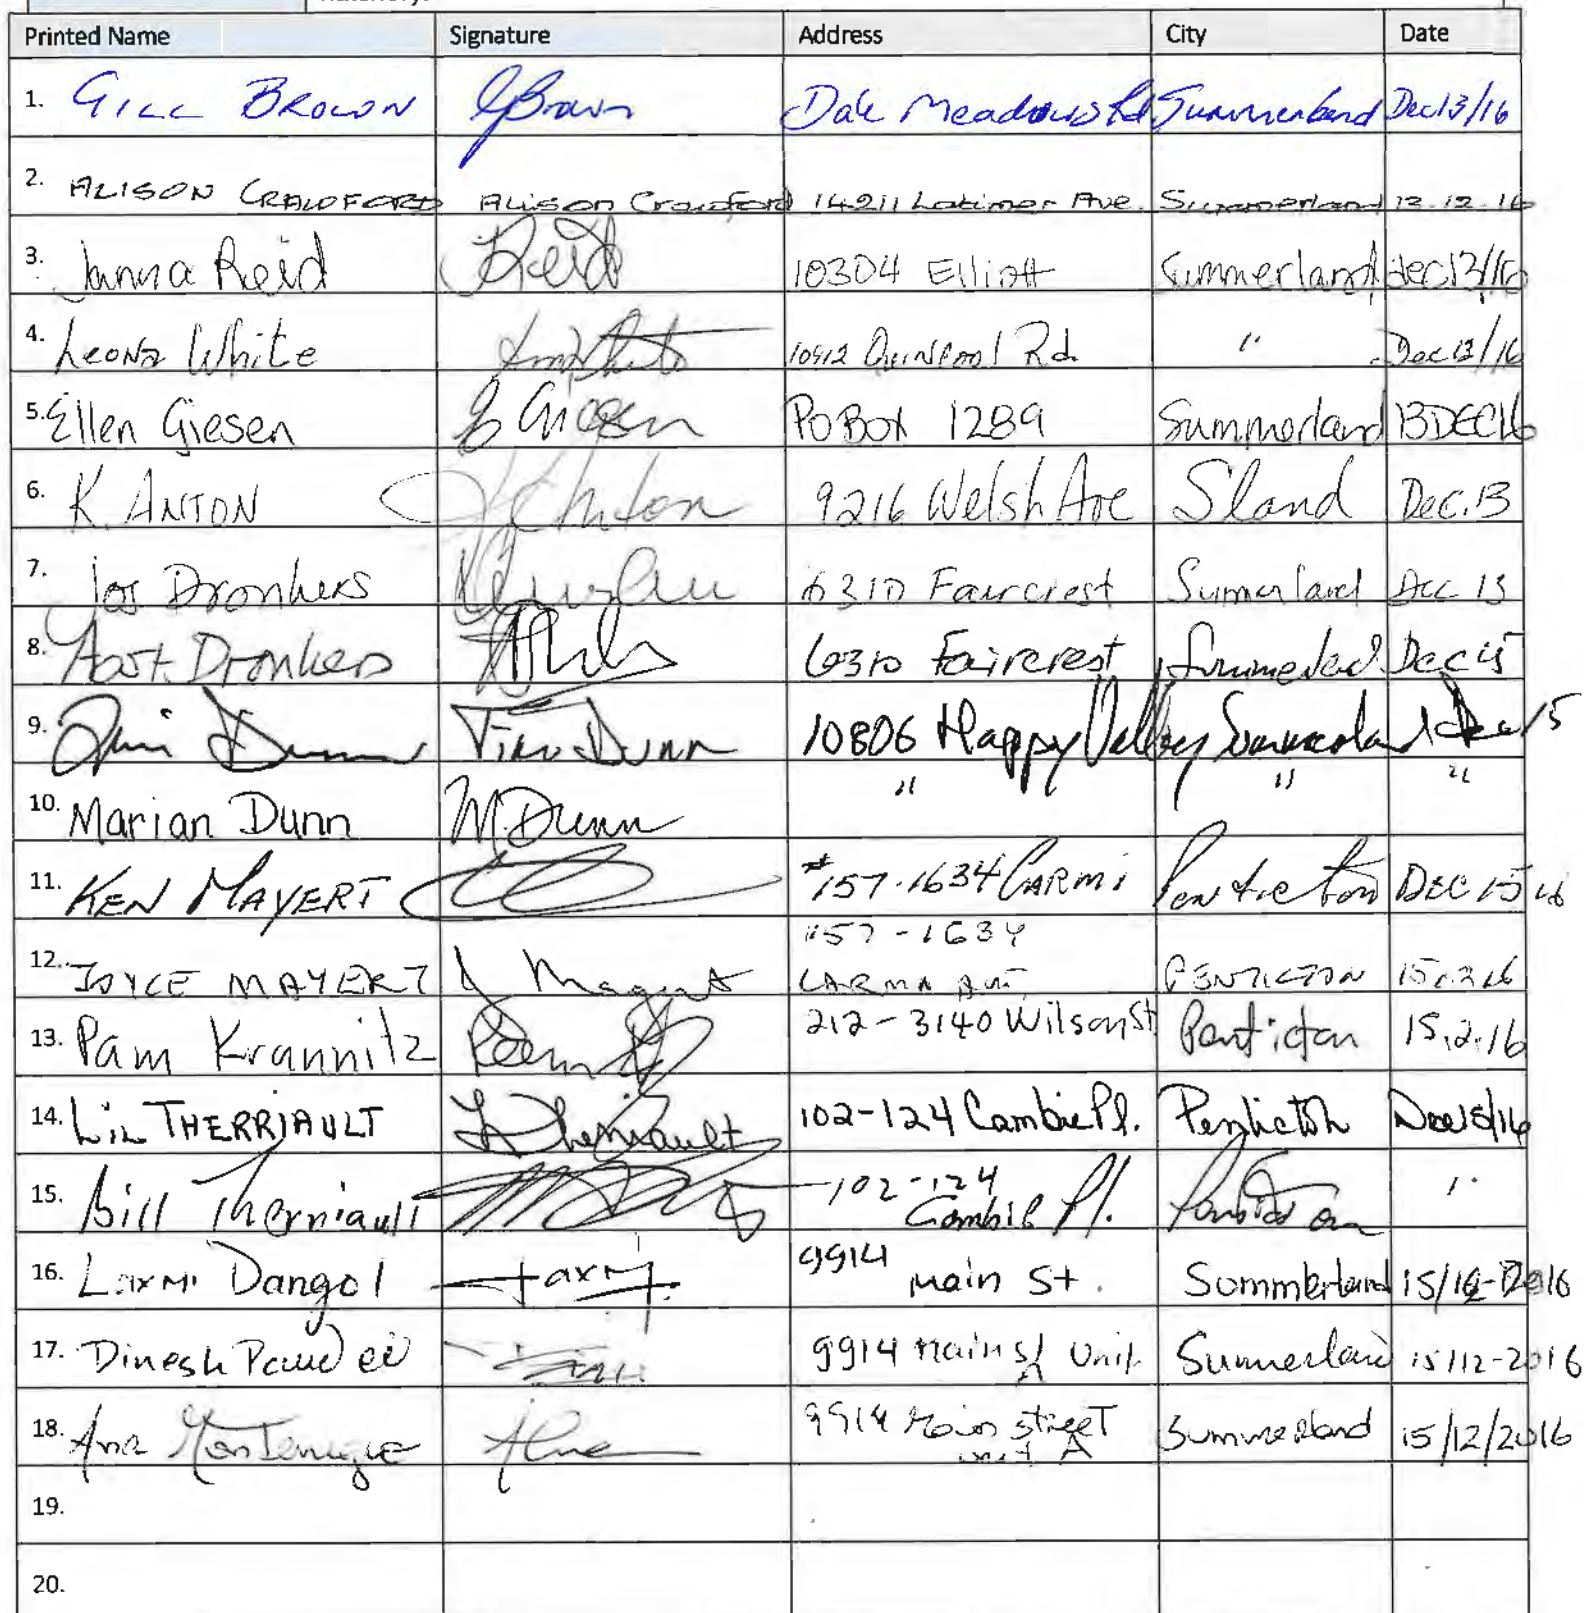 Printed Name Signature Address City Date
1. GILL BROWN GBrown Dale Meadows Rd Summerland Dec 13/16
2. ALISON CRAWFORD Alison Crawford 14211 Latimer Ave. Summerland 12.12.16
3. Reid Reid 10304 Elliott Summerland dec 13/16
4. Leona White 10912 Quinpool Rd " Dec 13/16
5. Ellen Giesen E Giesen PO BOX 1289 Summerland 13 DEC 16
6. K. ANTON KAnton 9216 Welsh Ave S'land Dec. 13
7. Jos Dronkers 6310 Faircrest Summerland Dec 13
8. Dronkers 6310 Faircrest Summerland Dec 15
9. Dunn Dunn 10806 Happy Valley Summerland Dec 15
10. Marian Dunn M. Dunn " " "
11. KEN MAYERT #157-1634 CARMI Penticton DEC 15 16
157-1634
12. JOYCE MAYERT J Mayert PENTICTON
13. Pam Krannitz Pam 212-3140 Wilson St Penticton 15.2.16
14. Lil THERRIAULT L Therriault 102-124 Cambie Pl. Penticton Dec 15/16
15. Bill Therriault 102-124 Cambie Pl. Penticton "
16. Laxmi Dangol Laxmi 9914 Main St. Summerland
17. Dinesh 9914 Main St Unit A Summerland 15/12-2016
18. Ana 9914 Main Street unit A Summerland 15/12/2016
19.
20.